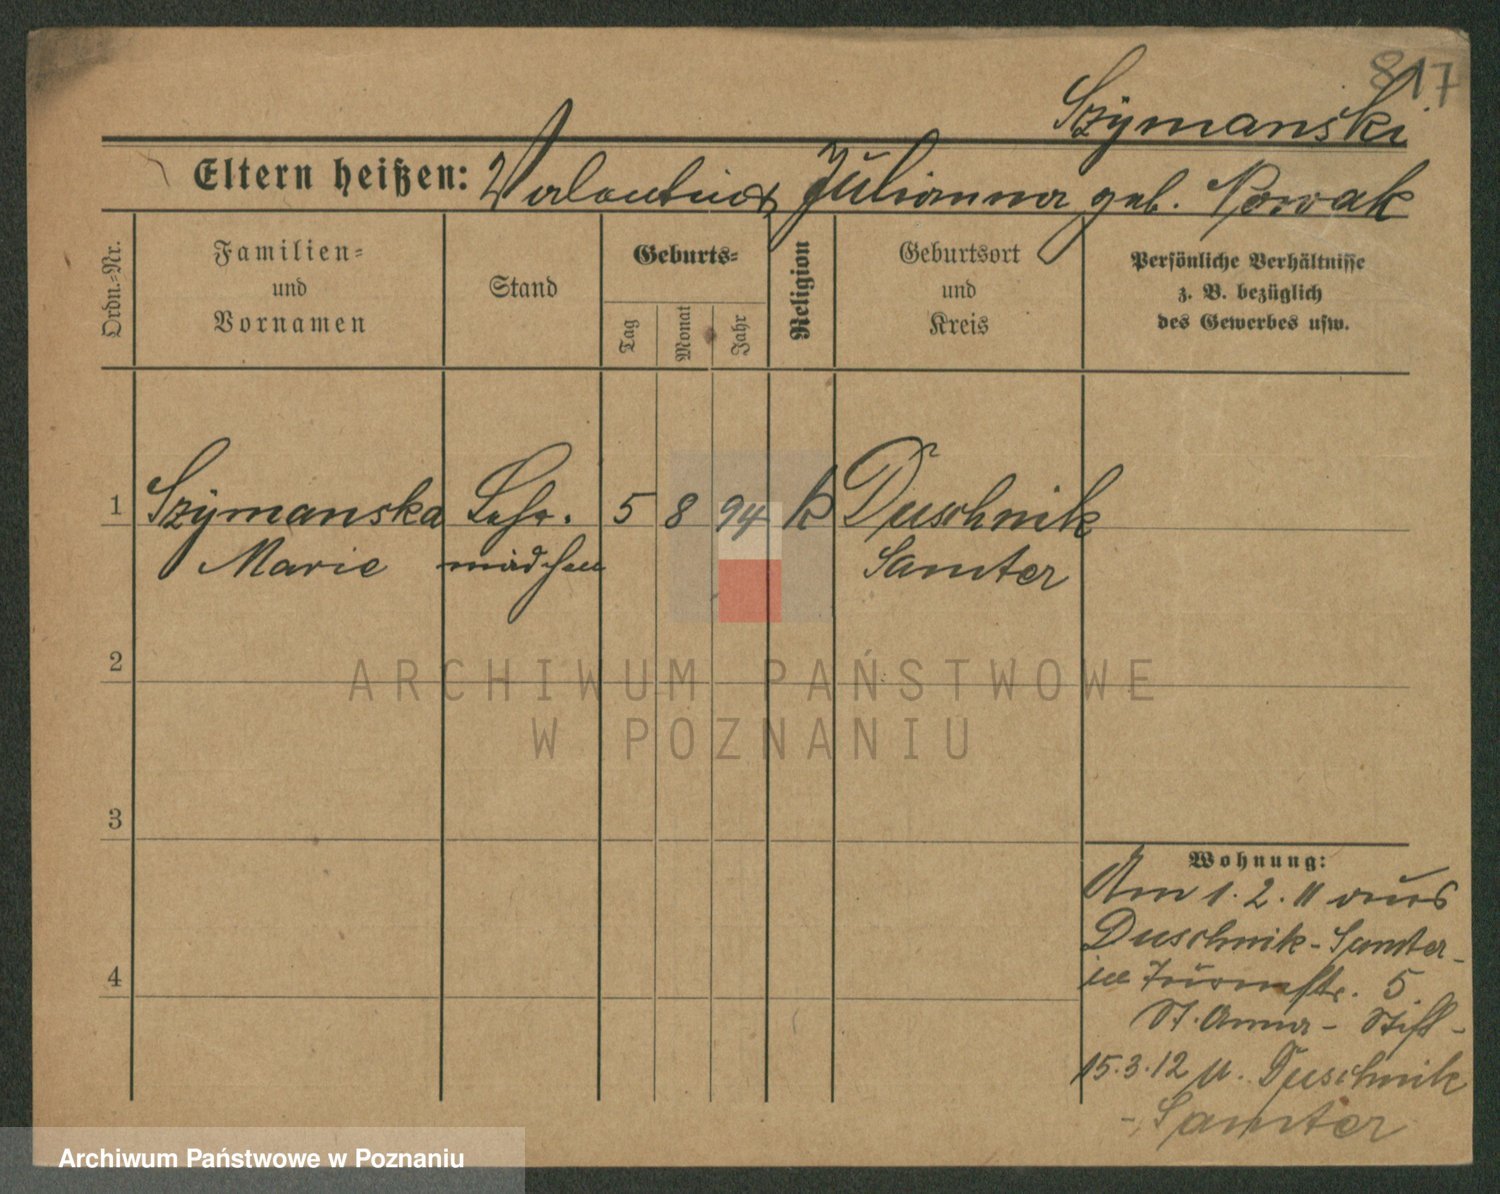 817
Szymanski
Eltern heißen: Valentin & Julianna geb. Nowak
Ordn.-Nr.
Familien-
und
Vornamen
Stand
Geburts-
Tag
Monat
Jahr
Religion
Geburtsort
und
Kreis
Persönliche Verhältnisse
z. B. bezüglich
des Gewerbes usw.
1 Szymanska Lehr. 5 8 94 k Duschnik
Marie mädchen Samter
2
3
4
Wohnung:
Am 1. 2. 11 aus
Duschnik-Samter-
in Turmstr. 5.
St. Anna-Stift-
15.3.12 n. Duschnik
-Samter
ARCHIWUM PAŃSTWOWE
W POZNANIU
Archiwum Państwowe w Poznaniu